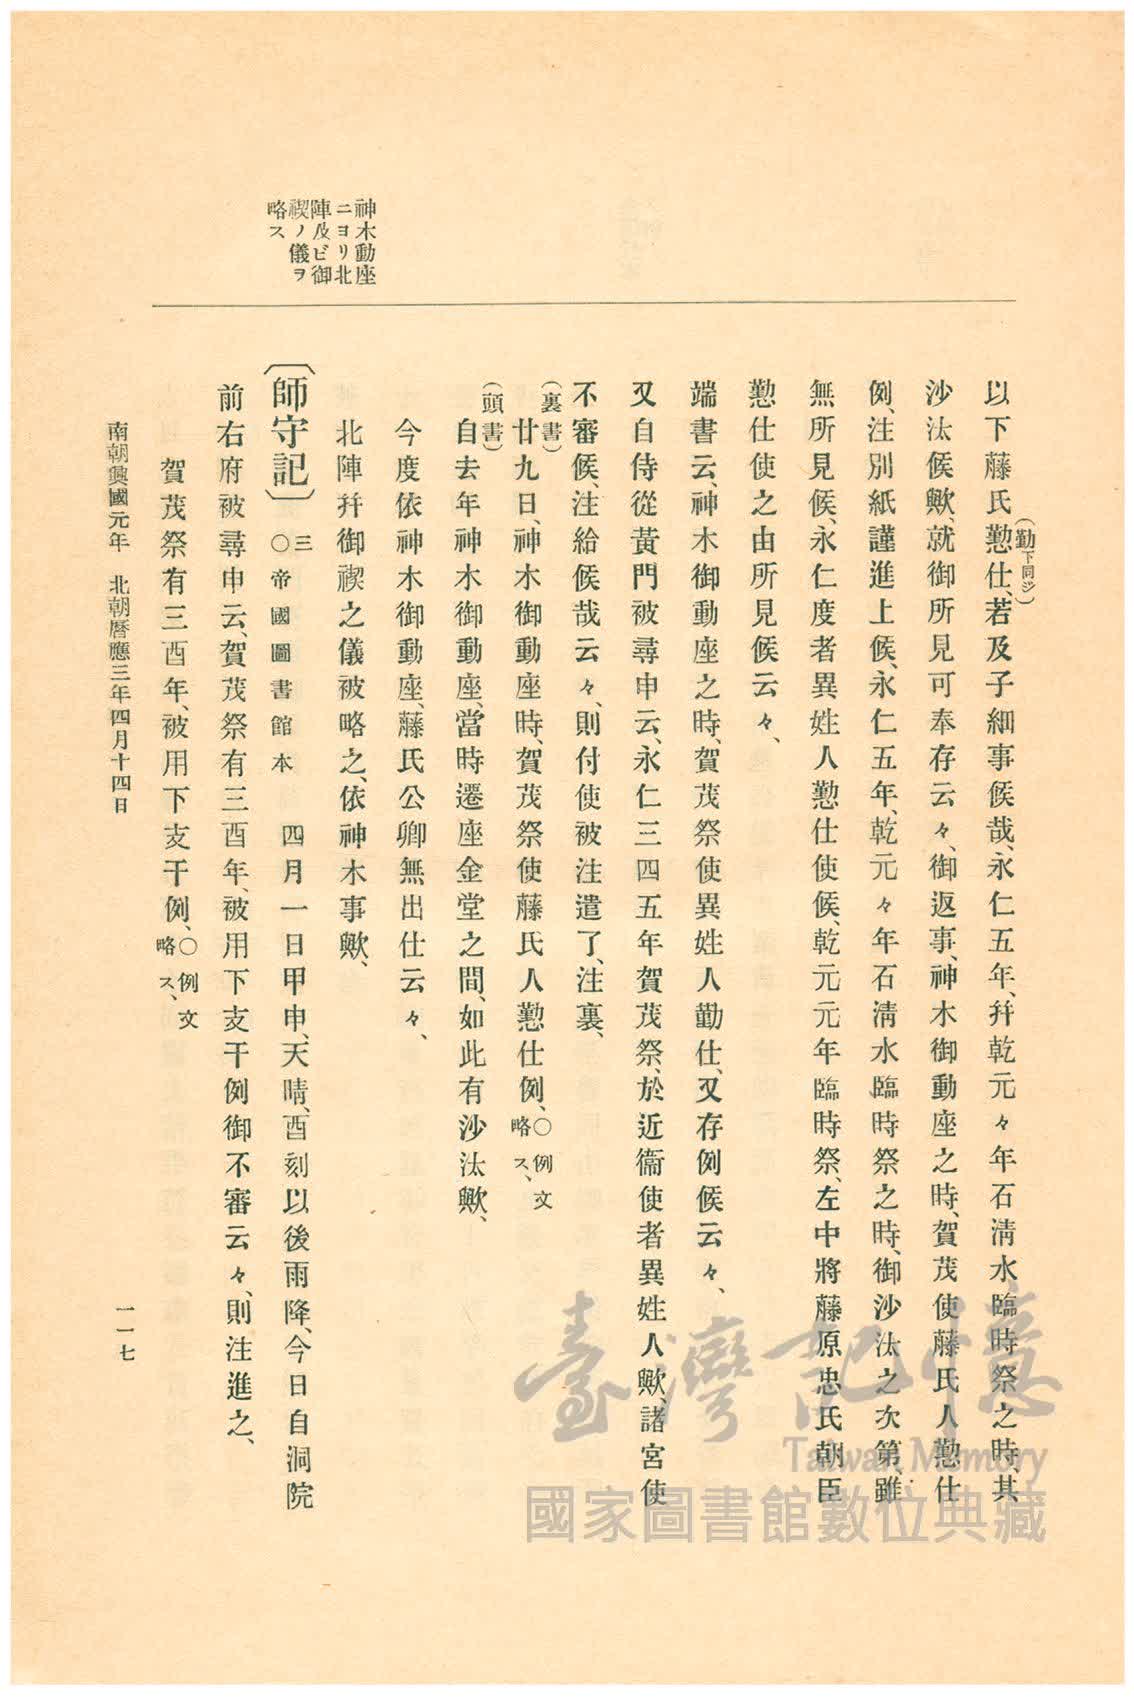 神木動座
ニヨリ北
陣及ビ御
禊ノ儀ヲ
略ス
以下藤氏懃(勤下同ジ)仕、若及子細事候哉、永仁五年、幷乾元々年石淸水臨時祭之時、其
沙汰候歟、就御所見可奉存云々、御返事、神木御動座之時、賀茂使藤氏人懃仕
例、注別紙謹進上候、永仁五年、乾元々年石淸水臨時祭之時、御沙汰之次第、雖
無所見候、永仁度者異姓人懃仕使候、乾元元年臨時祭、左中將藤原忠氏朝臣
懃仕使之由所見候云々、
端書云、神木御動座之時、賀茂祭使異姓人勤仕、又存例候云々、
又自侍從黃門被尋申云、永仁三四五年賀茂祭、於近衞使者異姓人歟、諸宮使
不審候、注給候哉云々、則付使被注遣了、注裏、
(裏書)
廿九日、神木御動座時、賀茂祭使藤氏人懃仕例、○例文略ス、
(頭書)
自去年神木御動座、當時遷座金堂之間、如此有沙汰歟、
今度依神木御動座、藤氏公卿無出仕云々、
北陣幷御禊之儀被略之、依神木事歟、
〔師守記〕三○帝國圖書館本 四月一日甲申、天晴、酉刻以後雨降、今日自洞院
前右府被尋申云、賀茂祭有三酉年、被用下支干例御不審云々、則注進之、
賀茂祭有三酉年、被用下支干例、○例文略ス、
南朝興國元年 北朝曆應三年四月十四日
一一七
臺灣記憶
Taiwan Memory
國家圖書館數位典藏